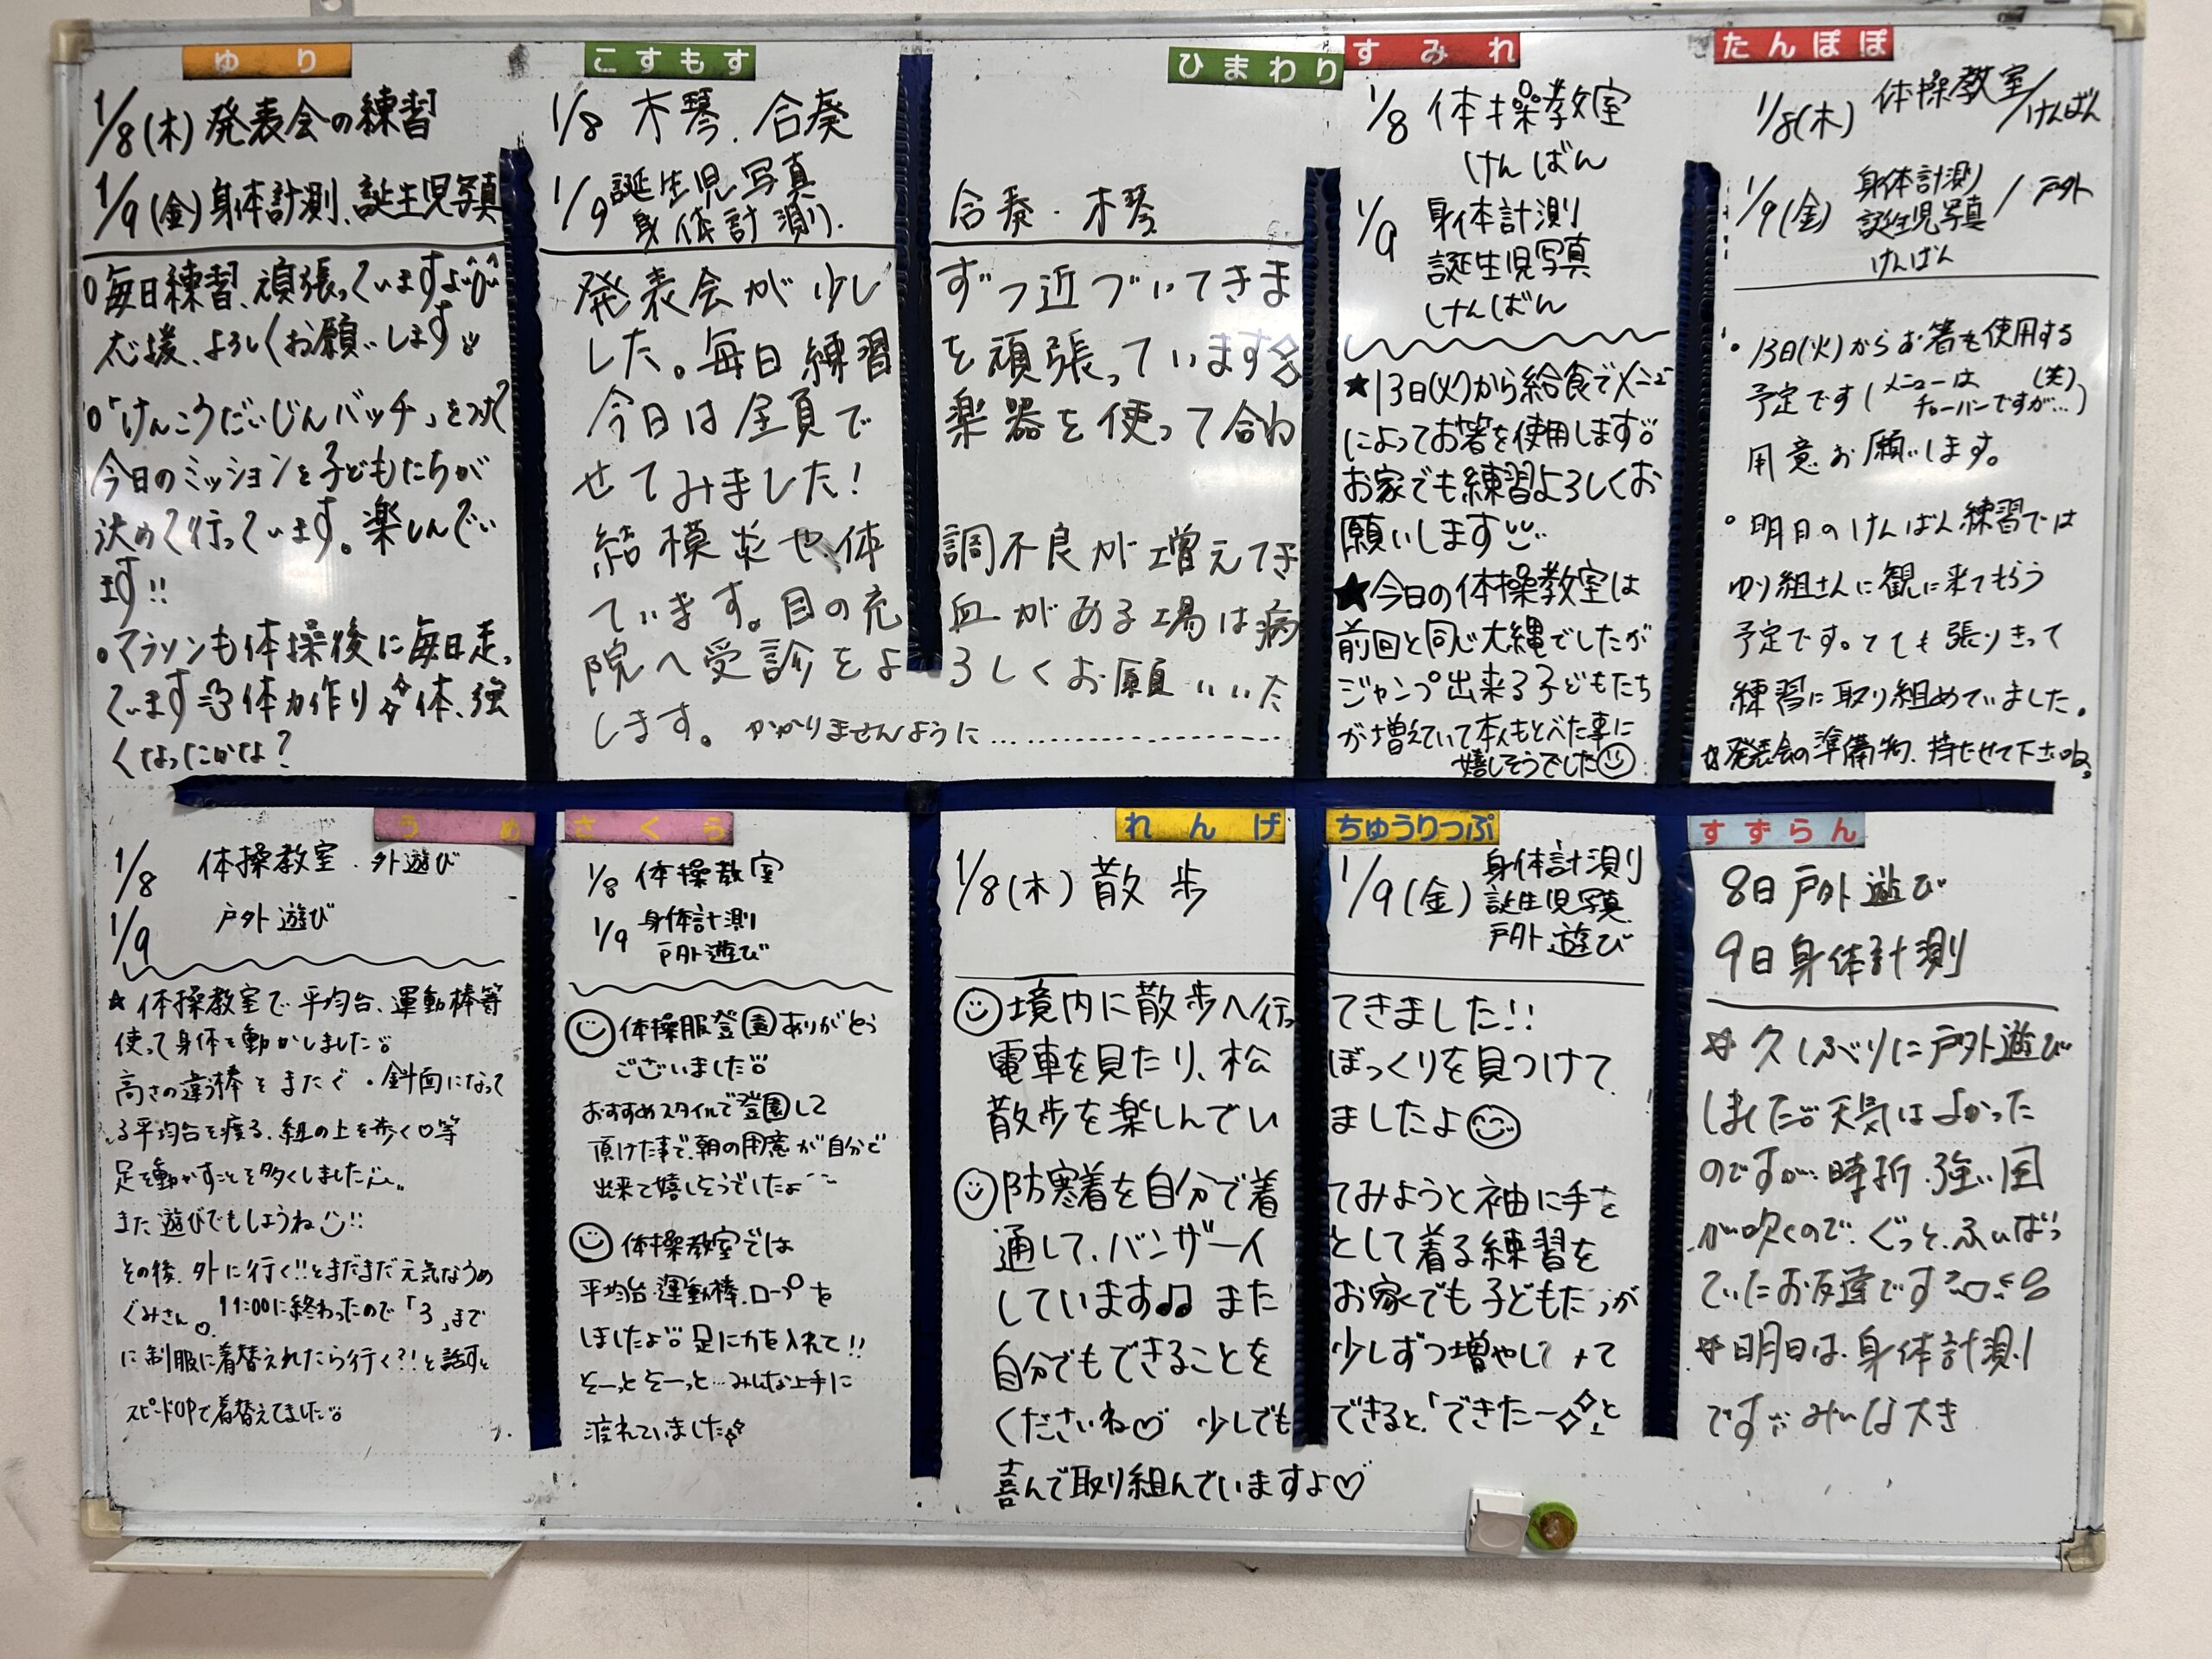 ゆり
1/8(木)発表会の練習
1/9(金)身体計測、誕生児写真
○毎日練習、頑張っていますよ
応援、よろしくお願いします
○「けんこうだいじんバッチ」をつけて
今日のミッションを子どもたちが
決めて行っています。楽しんでい
ます!!
○マラソンも体操後に毎日走っ
ています 体力作り 体、強
くなったかな?
こすもす ひまわり
1/8 木琴.合奏
1/9 誕生児写真
身体計測. 合奏.木琴
発表会が少しずつ近づいてきま
した。毎日練習を頑張っています
今日は全員で楽器を使って合わ
せてみました!
結膜炎や体調不良が増えてき
ています。目の充血がある場は病
院へ受診をよろしくお願いいた
します。かかりませんように…………………
すみれ
1/8 体操教室
けんばん
1/9 身体計測
誕生児写真
けんばん
★13日(火)から給食でメニュー
によってお箸を使用します
お家でも練習よろしくお
願いします
★今日の体操教室は
前回と同じ大縄でしたが
ジャンプ出来る子どもたち
が増えていて本人もとべた事に
嬉しそうでした
たんぽぽ
1/8(木) 体操教室/けんばん
1/9(金) 身体計測
誕生児写真 / 戸外
けんばん
・13日(火)からお箸を使用する
予定です(メニューは
チャーハンですが…(笑))
用意お願いします。
○明日のけんばん練習では
ゆり組さんに観に来てもらう
予定です。とても張りきって
練習に取り組めていました。
☆発表会の準備物、持たせて下さいね。
うめ
1/8 体操教室.外遊び
1/9 戸外遊び
★体操教室で平均台、運動棒等
使って身体を動かしました
高さの違う棒をまたぐ・斜面になって
る平均台を渡る.組の上を歩く 等
足を動かすことを多くしました
また遊びでもしましょうね!!
その後、外に行く!!とまだまだ元気なうめ
ぐみさん 11:00に終わったので「3」まで
に制服に着替えれたら行く?!と話すと
スピードUPで着替えてました
さくら
1/8 体操教室
1/9 身体計測
戸外遊び
体操服登園ありがとう
ございました
おすすめスタイルで登園して
頂けた事で、朝の用意が自分で
出来て嬉しそうでしたよ
体操教室では
平均台.運動棒.ロープを
しましたよ 足に力を入れて!!
そーっとそーっと…みんな上手に
渡れていました
れんげ ちゅうりっぷ
1/8(木) 散歩
1/9(金) 身体計測
誕生児写真
戸外遊び
境内に散歩へ行ってきました!!
電車を見たり、松ぼっくりを見つけて
散歩を楽しんでいましたよ
防寒着を自分で着てみようと袖に手を
通して、バンザーイとして着る練習を
しています♫ またお家でも子どもたちが
自分でもできることを少しずつ増やして
くださいね♡ 少しでもできると、「できたー」と
喜んで取り組んでいますよ♡
すずらん
8日 戸外遊び
9日 身体計測
☆久しぶりに戸外遊び
しました 天気はよかった
のですが、時折.強い風
が吹くので、ぐっと、ふんばっ
ていたお友達です
☆明日は.身体計測
です みんな大き